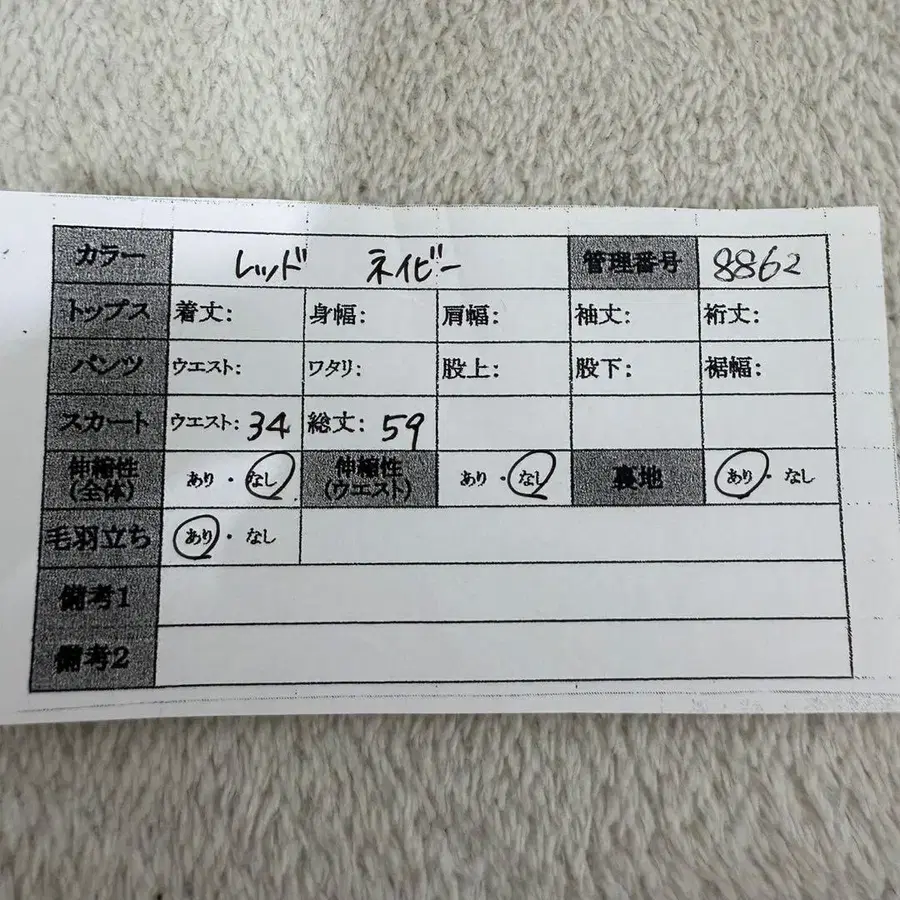 カラー レッド ネイビー 管理番号 8862
トップス 着丈: 身幅: 肩幅: 袖丈: 裄丈:
パンツ ウエスト: ワタリ: 股上: 股下: 裾幅:
スカート ウエスト: 34 総丈: 59
伸縮性(全体) あり・なし 伸縮性(ウエスト) あり・なし 裏地 あり・なし
毛羽立ち あり・なし
備考1
備考2